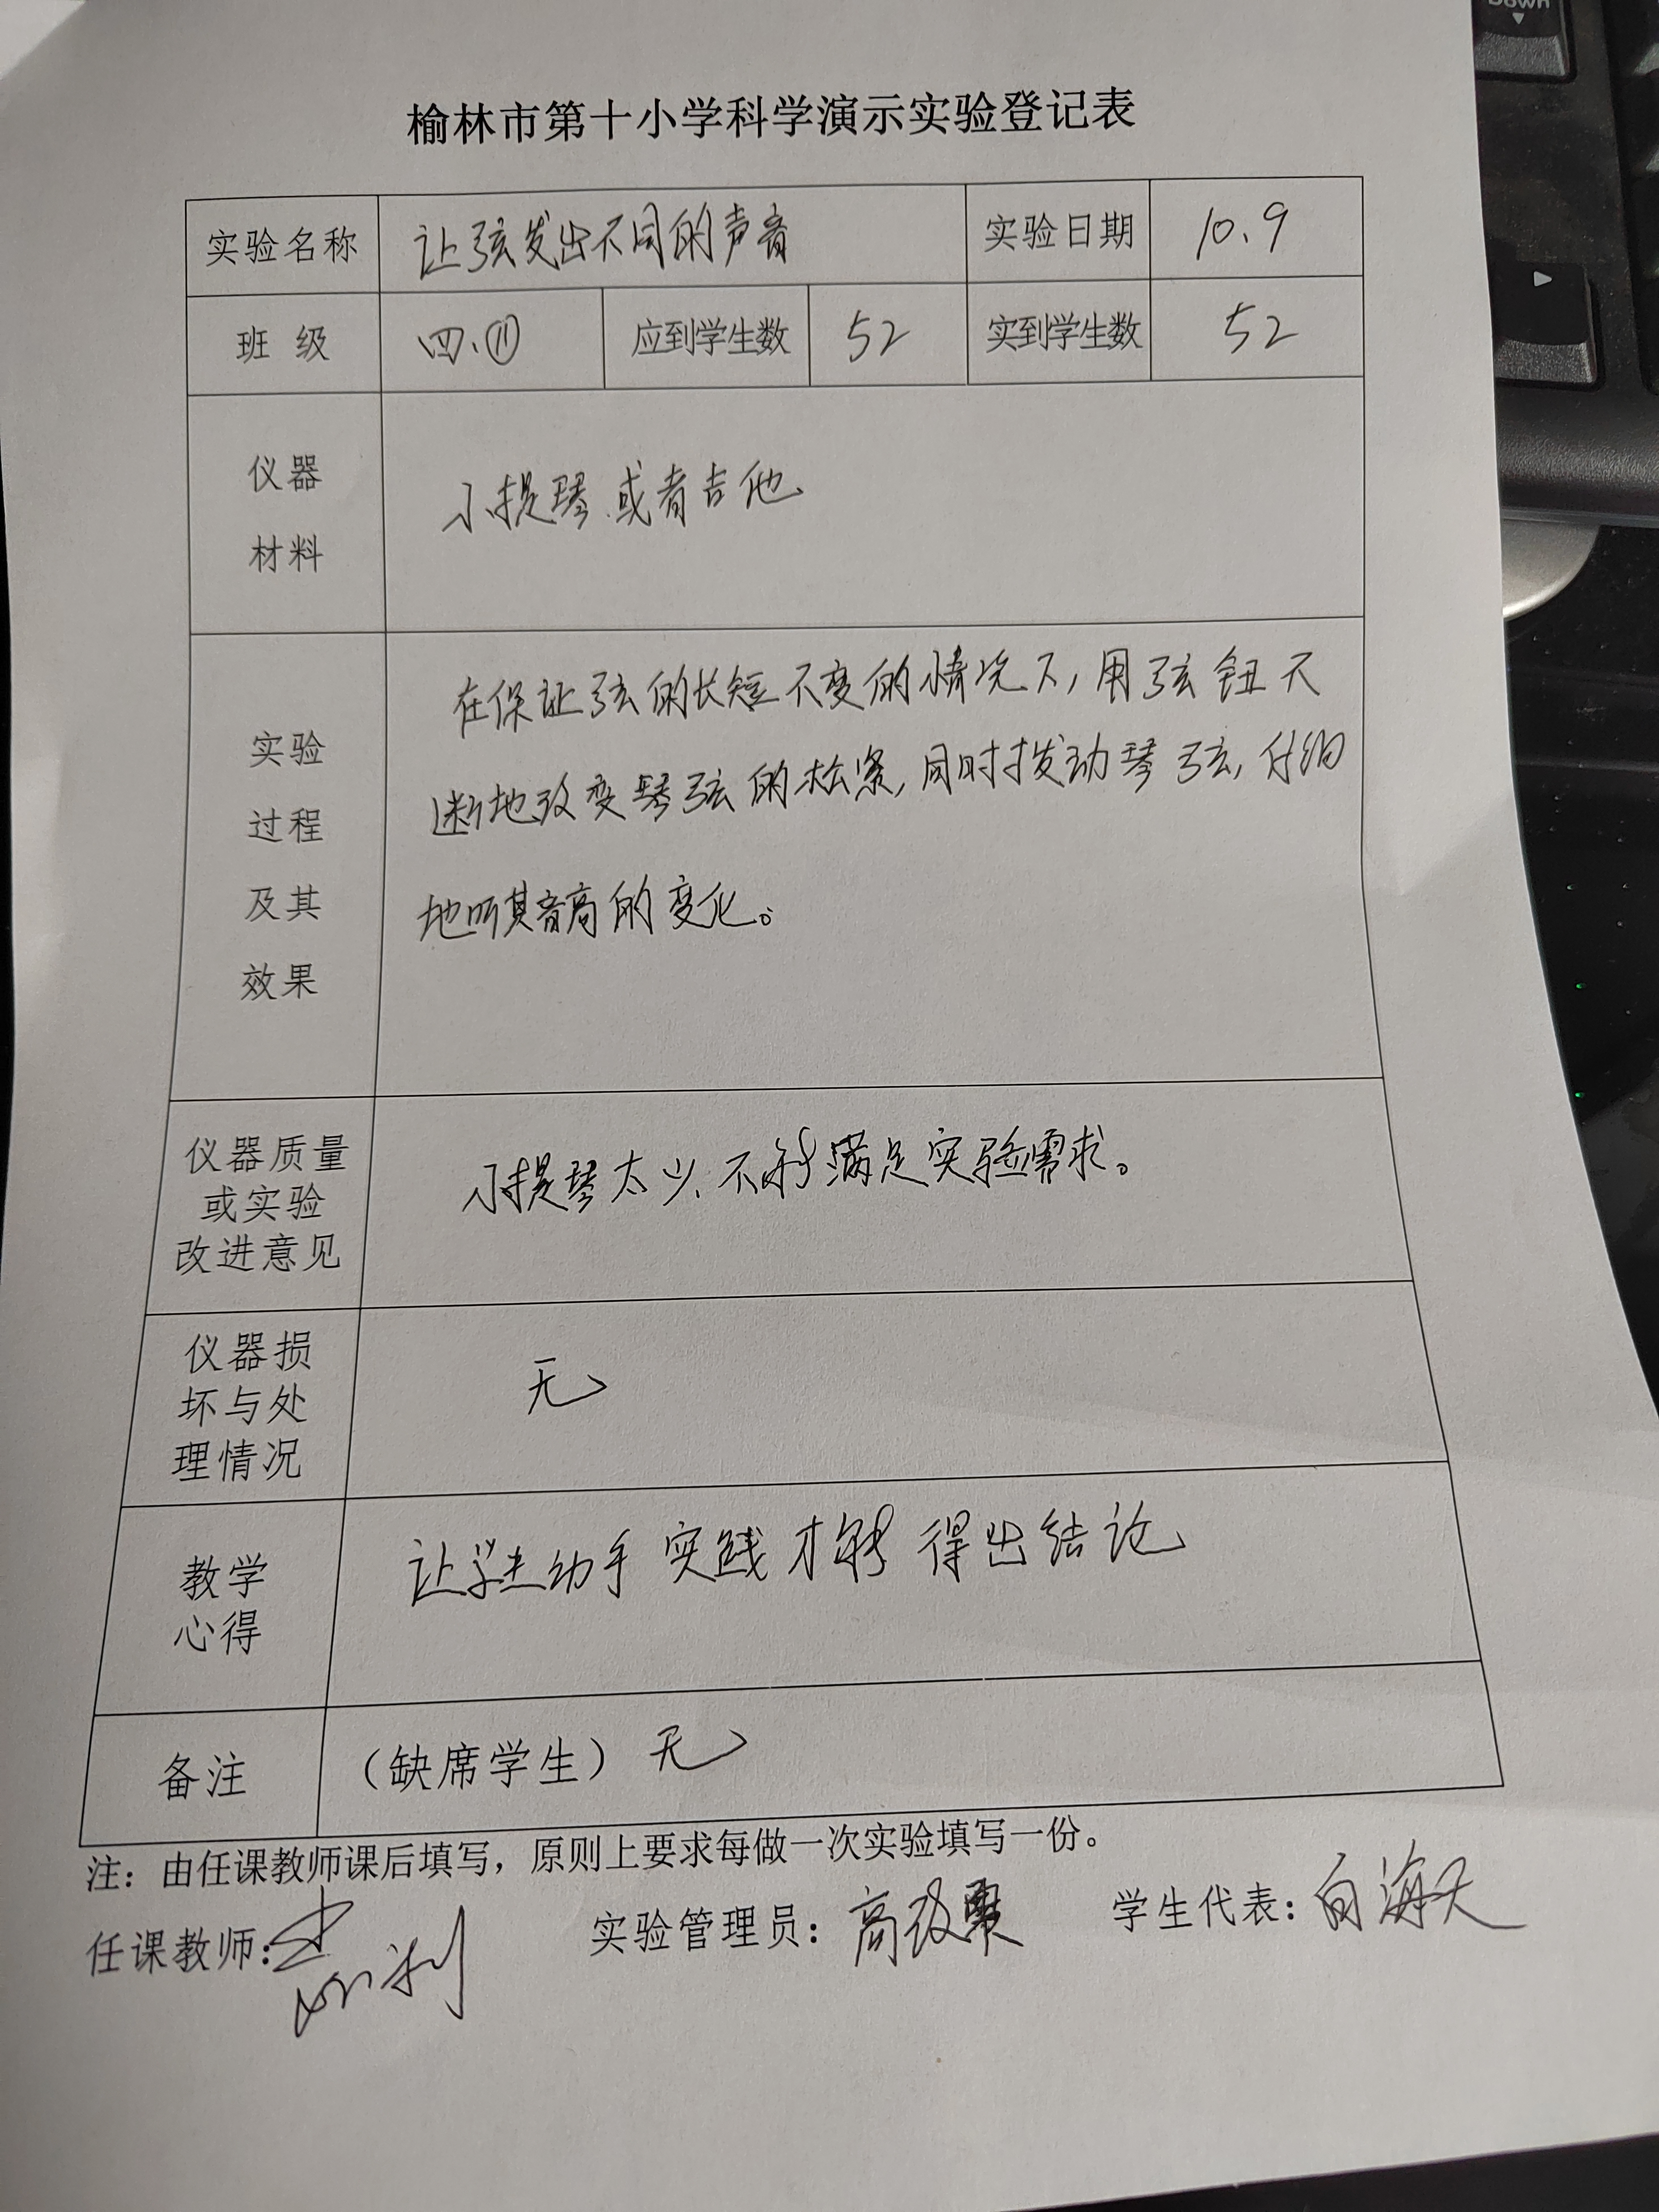 榆林市第十小学科学演示实验登记表
实验名称 让弦发出不同的声音 实验日期 10.9
班 级 四.⑪ 应到学生数 52 实到学生数 52
仪器
材料
小提琴.或者吉他
实验
过程
及其
效果
在保证弦的长短不变的情况下,用弦钮不
断地改变琴弦的松紧,同时拨动琴弦,仔细
地听其音高的变化。
仪器质量
或实验
改进意见
小提琴太少.不能满足实验需求。
仪器损
坏与处
理情况
无
教学
心得
让学生动手实践才能得出结论
备注 （缺席学生）无
注：由任课教师课后填写，原则上要求每做一次实验填写一份。
任课教师： 实验管理员：高 学生代表：白海天
Down